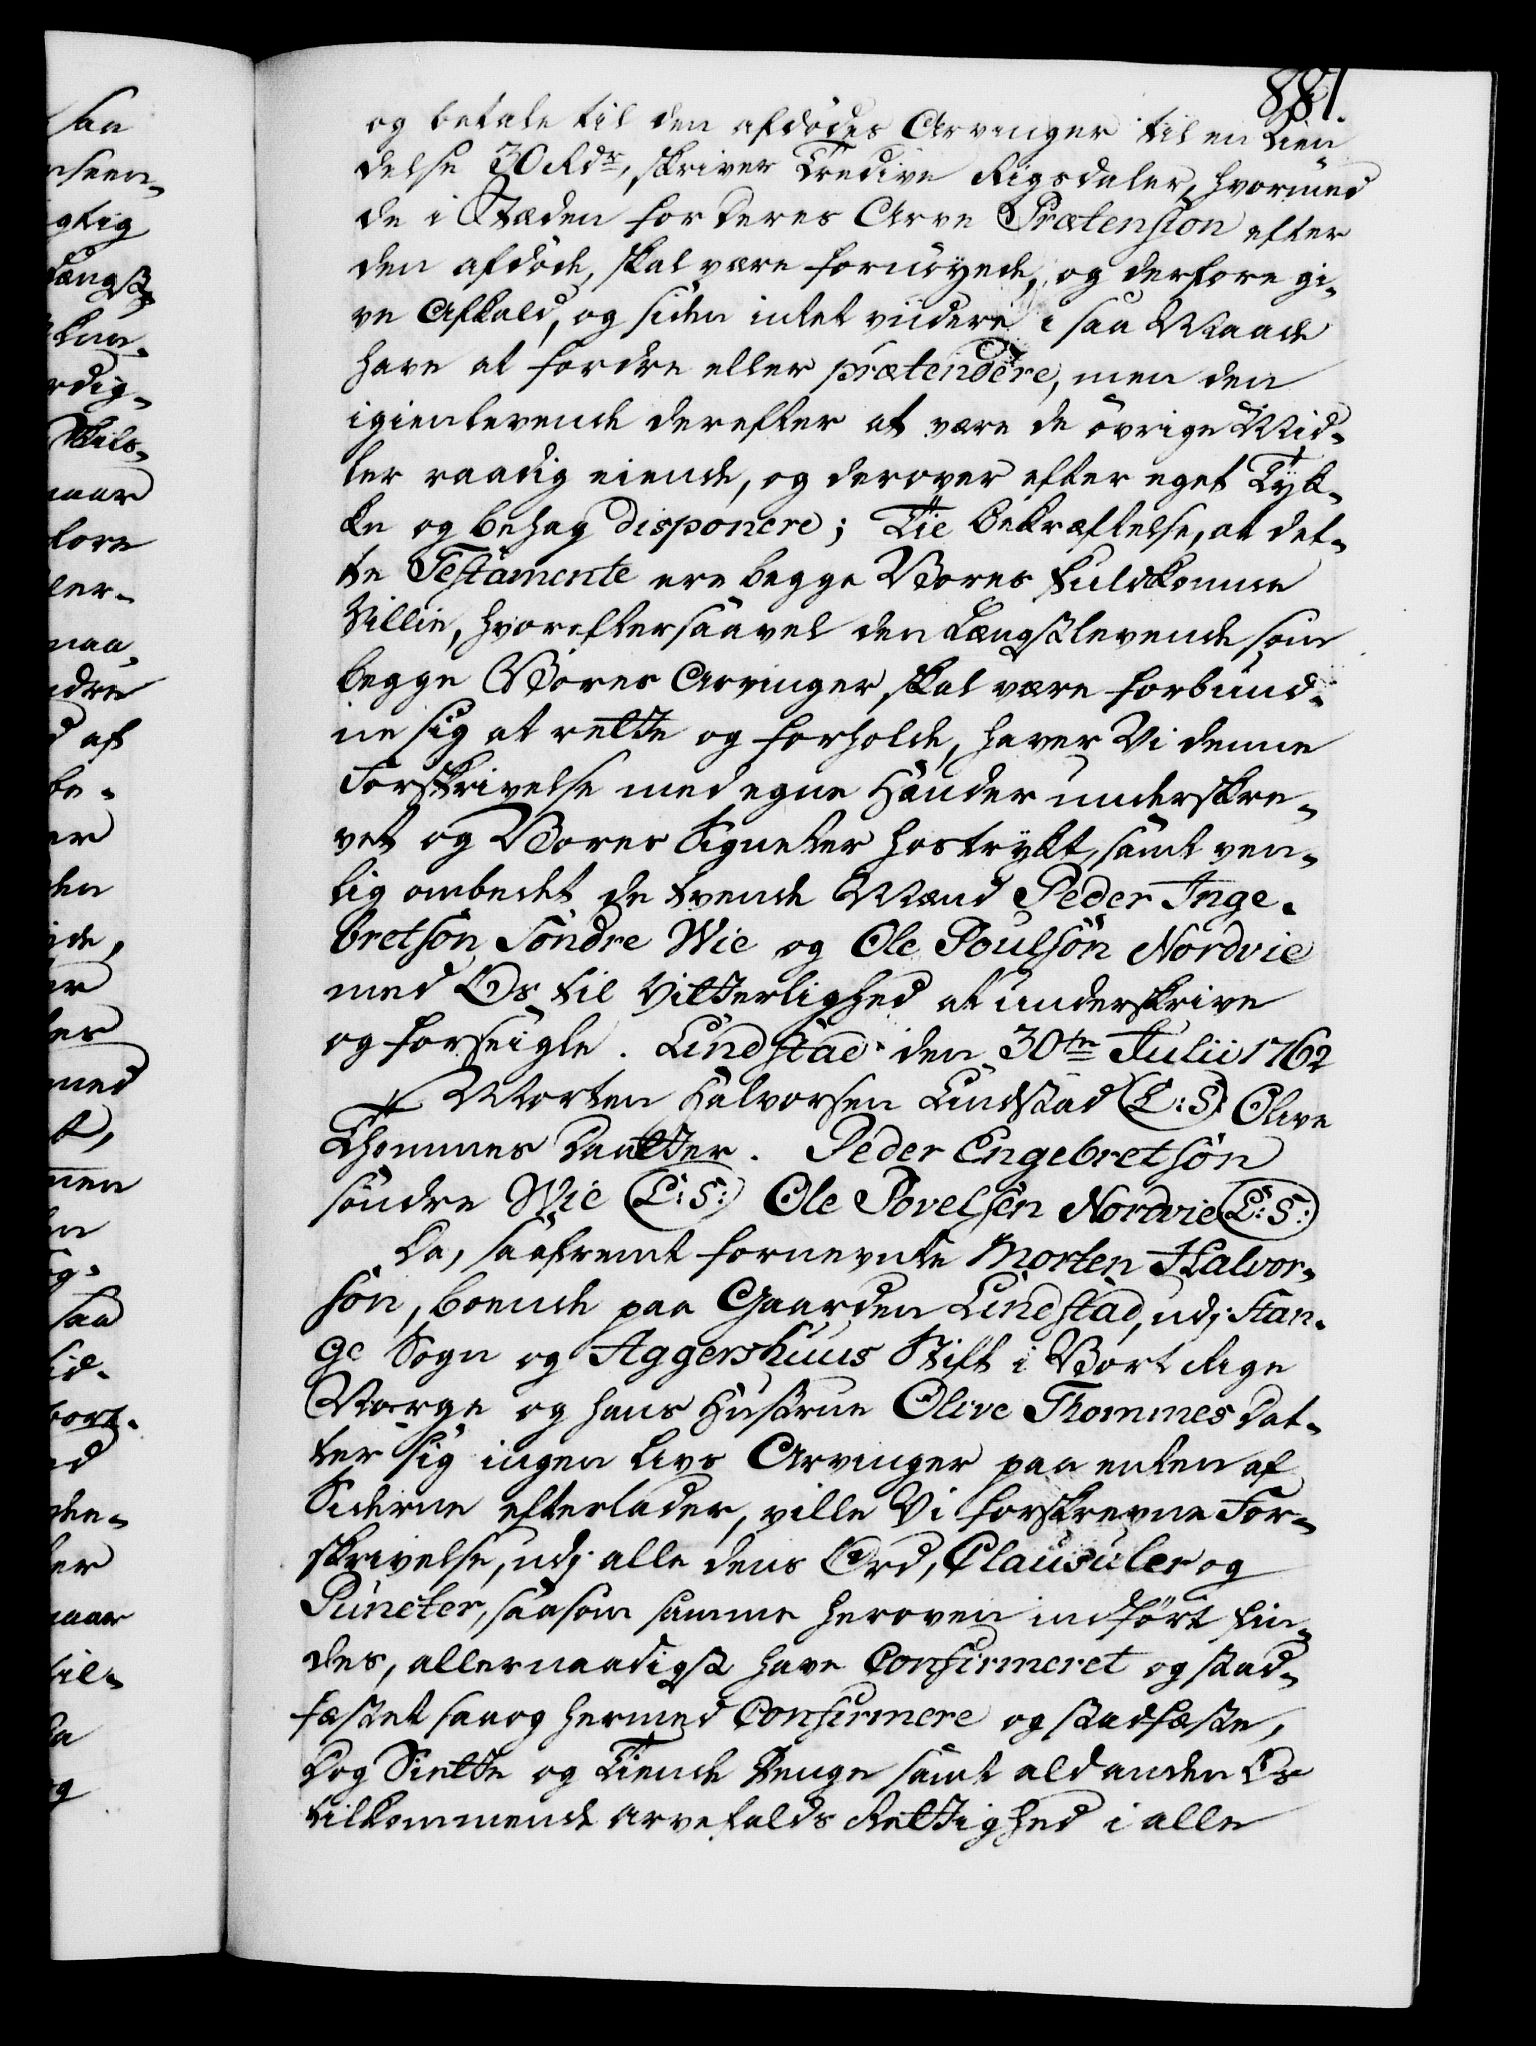 881.
og betale til den afdödes Arvinger til en Kien¬
delse 30 Rdr, skriver Tredive Rigsdaler, hvormed
de i Stæden for deres Arve Prætension efter
den afdöde, skal være fornöyede, og derfore gi¬
ve Afkald, og siden intet viidere i saa Maade
have at fordre eller prætendere, men den
igienlevende derefter at være de övrige Mid¬
ler raadig eiende, og derover efter eget Tyk¬
ke og behag disponere; Til Bekræftelse, at det¬
te Testamente ere begge Vores fuldkomne
Villie, hvorefter saavel den Længstlevende som
begge Vores Arvinger, skal være forbund¬
ne sig at rette og forholde, haver Vi denne
Forskrivelse med egne Hænder underskre¬
vet og Vores Signeter hostrykt, samt ven¬
lig ombedt de tvende Mænd Peder Inge¬
bretsön Söndre Wie og Ole Poulsön Nordvie
med Os til Vitterlighed at underskrive
og forseigle. Lindstad den 30te Julii 1762
Morten Halvorsen Lindstad (L:S:) Olive
Thommes Daatter. Peder Engebretsön
söndre Wie (L:S:) Ole Povelsen Nordvie (L:S:)
Da, saafremt fornevnte Morten Halvor¬
sön, boende paa Gaarden Lindstad, udj Stan¬
ge Sogn og Aggershuus Stift i Vort Rige
Norge og hans Hustrue Olive Thommes Dat¬
ter sig ingen Livs Arvinger paa enten af
Siderne efterlader, ville Vi forskrevne For¬
skrivelse, udj alle dens Ord, Clausuler og
Puncter, saasom samme heroven indfört fin¬
des, allernaadigst have Confirmeret og stad¬
fæstet saa og hermed Confirmere og stadfæste,
Dog Siette og Tiende Penge samt ald anden Os
tilkommende Arvefalds Rettighed i alle